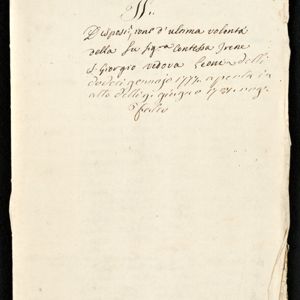 Disposizione d'ultima volontà
della fu sigra Contessa Irene
S. Giorgio vedova Leoni delli
dodeci gennajo 1777. aperta in
atto delli gi. giugno